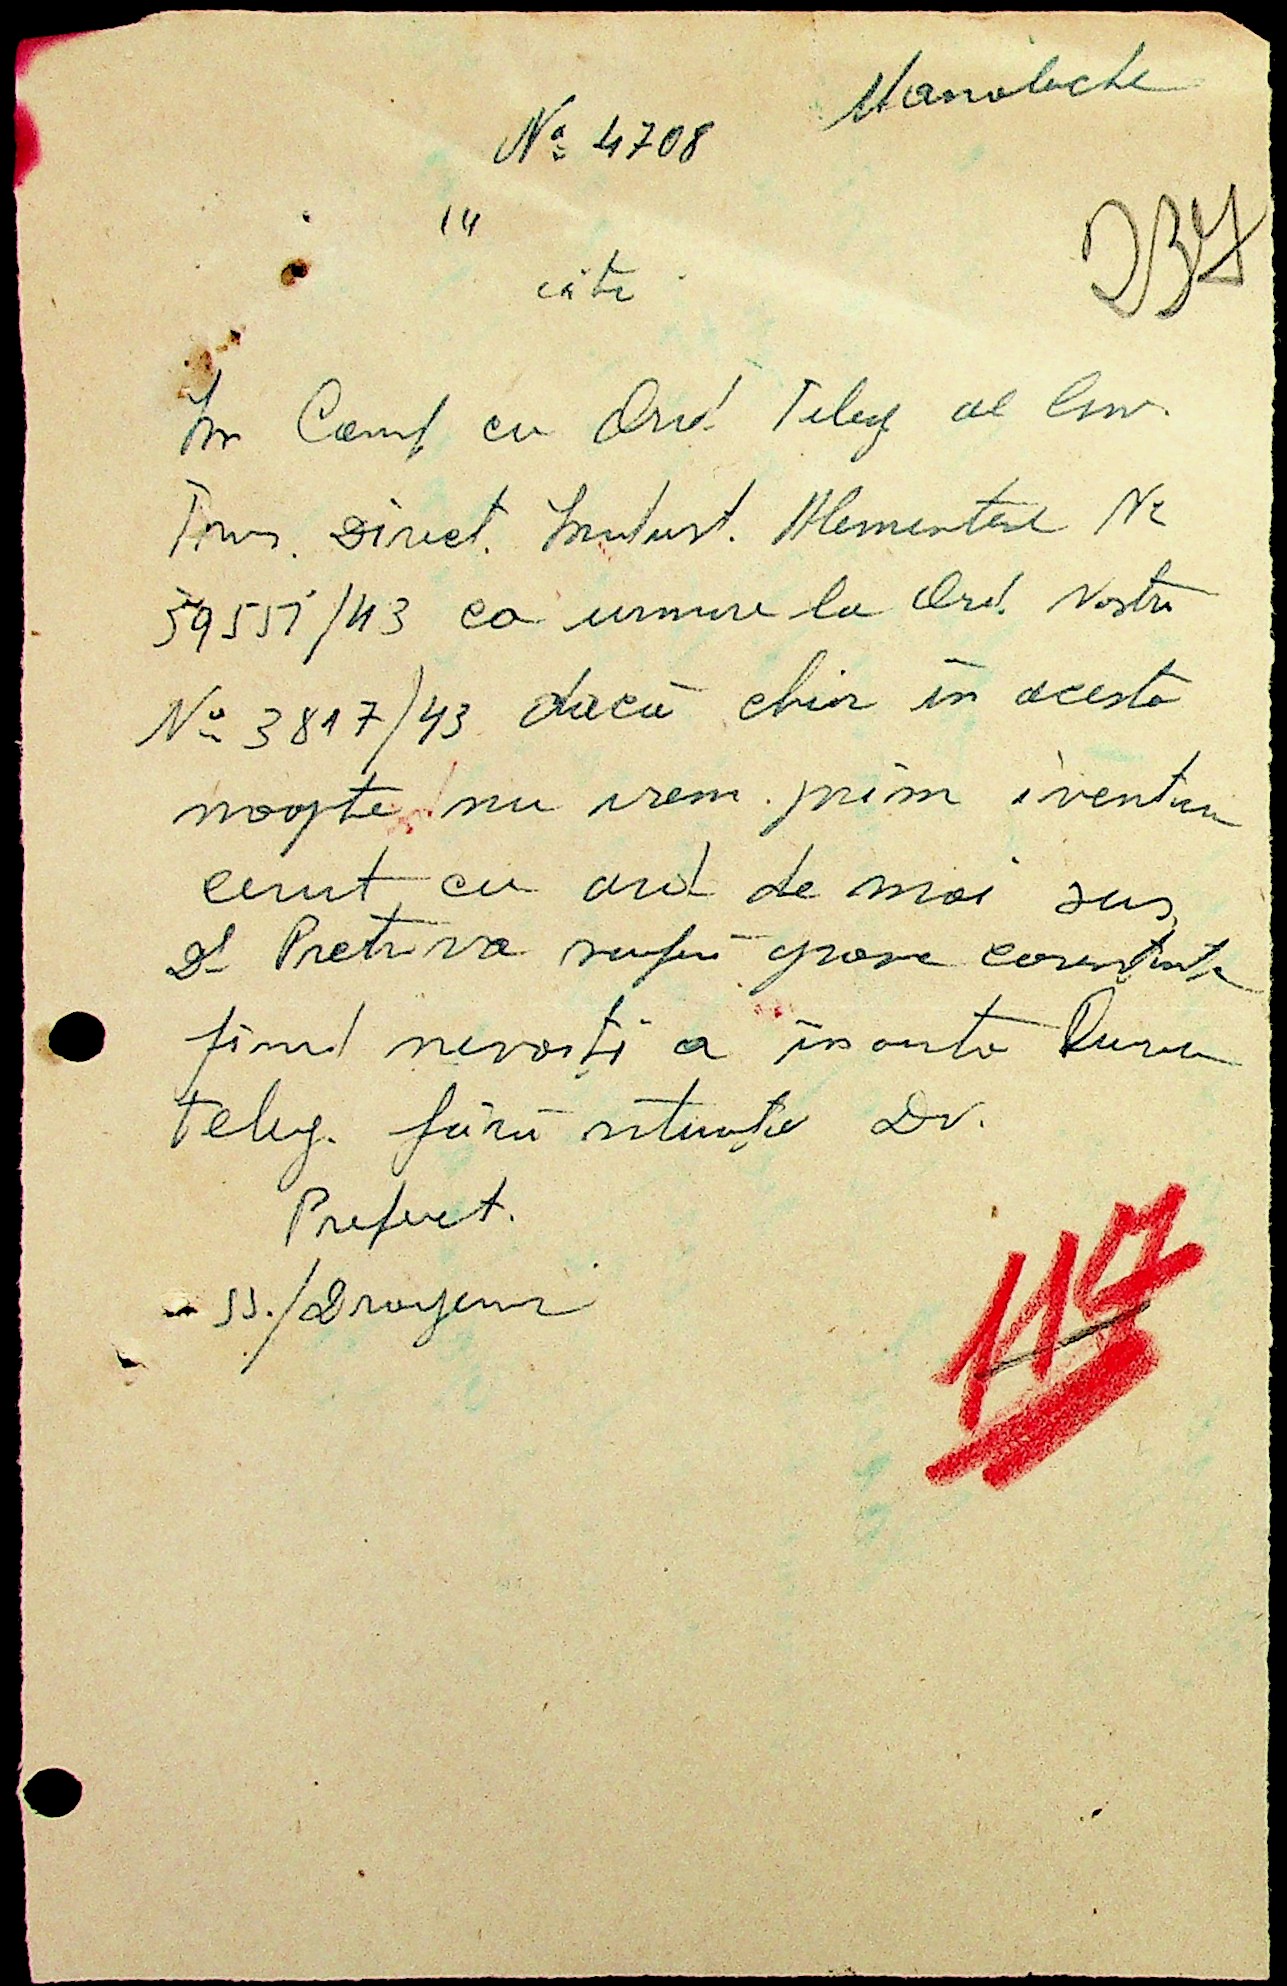 Manolache
No 4708
237
14
către
In Conf cu Ord. Teleg al
Direct. Indust. Alimentare Nr
59551/43 ca urmare la Ord. Nostru
No 3817/43 dacă chiar în acesta
noapte nu vrem primi inventar
cerut cu ord de mai sus
Dl Pretor va suferi grave consecințe
fiind nevoiți a înainta
teleg. fără situație Dv.
Prefect.
ss./
117